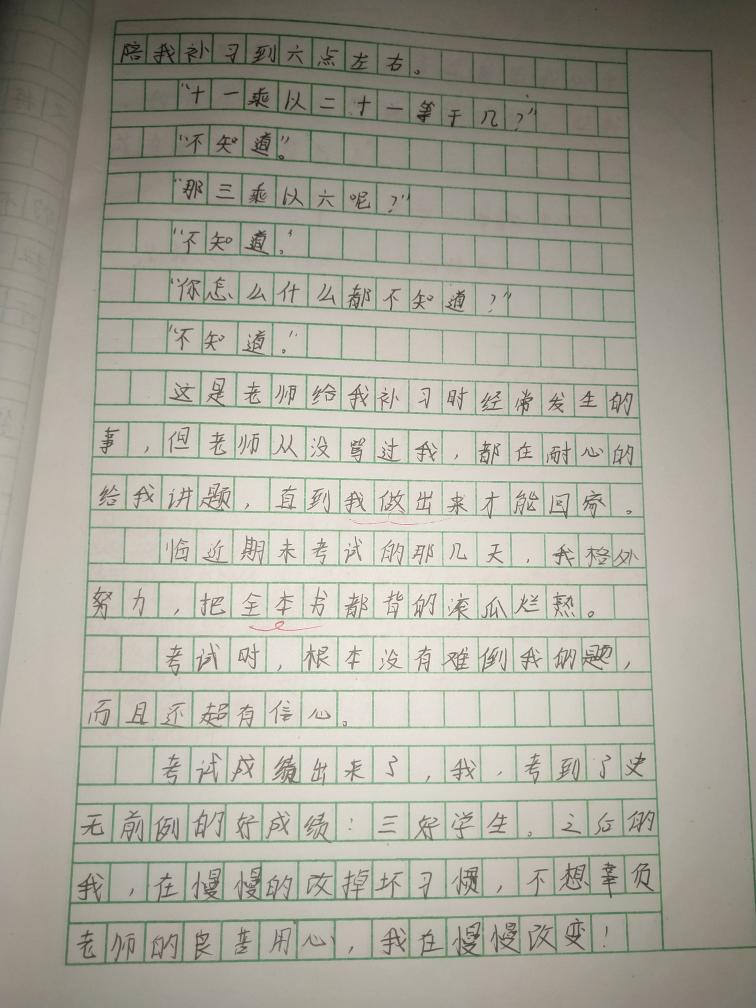 陪我补习到六点左右。
“十一乘以二十一等于几？”
“不知道”。
“那三乘以六呢？”
“不知道。”
“你怎么什么都不知道？”
“不知道。”
这是老师给我补习时经常发生的
事，但老师从没骂过我，都在耐心的
给我讲题，直到我做出来才能回家。
临近期末考试的那几天，我格外
努力，把全本书都背的滚瓜烂熟。
考试时，根本没有难倒我的题，
而且还超有信心。
考试成绩出来了，我，考到了史
无前例的好成绩：三好学生。之后的
我，在慢慢的改掉坏习惯，不想辜负
老师的良善用心，我在慢慢改变！